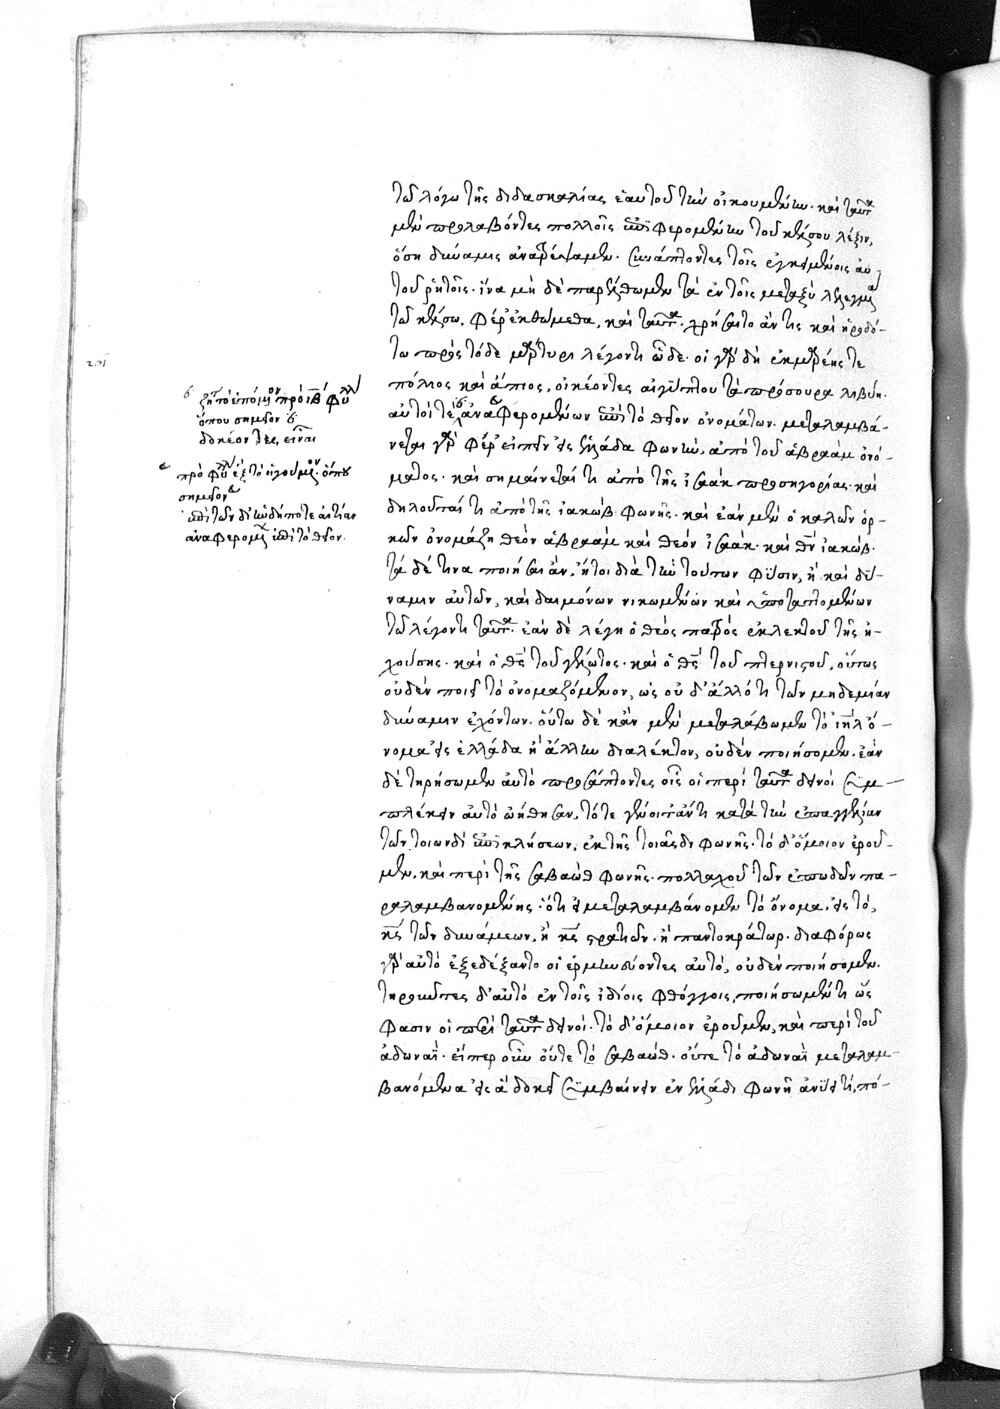 τῶ λόγω τῆς διδασκαλίας ἑαυτοῦ τὴν οἰκουμένην. καὶ ταῦτα
μὲν προλαβόντες πολλοῖς ἐπιφερομένην τοῦ κέλσου λέξιν,
ὅση δύναμις ἀνατρέψαμεν. συνάπτοντες τοῖς ἐγκειμένοις αὐ
τοῦ ῥητοῖς. ἵνα μὴ δὲ παρέλθωμεν τὰ ἐν τοῖς μεταξὺ λελεγμένα
τῶ κέλσω. φέρ' ἐκθώμεθα, καὶ ταῦτα. χρήσαιτο ἄν τις καὶ ἡροδό-
τω πρὸς τόδε μάρτυρι λέγοντι ὧδε. οἱ γὰρ δὴ ἐκ μαρέης τε
πόλιος καὶ ἄπιος, οἰκέοντες αἰγύπτου τὰ πρόσουρα λιβύη.
αὐτοί τε ἀναφερομένων ἐπὶ τὸ θεῖον ὀνομάτων. μεταλαμβά-
νεται γὰρ φέρ' εἰπεῖν εἰς ἑλλάδα φωνὴν, ἀπὸ τοῦ ἀβραὰμ ὀνό-
ματος. καὶ σημαίνεταί τι ἀπὸ τῆς ἰσαὰκ προσηγορίας. καὶ
δηλοῦταί τι ἀπὸ τῆς ἰακὼβ φωνῆς. καὶ ἐὰν μὲν ὁ καλῶν ὁρ-
κῶν ὀνομάζη θεὸν ἀβραὰμ καὶ θεὸν ἰσαὰκ. καὶ θν ἰακὼβ.
τὰ δέ τινα ποιήσαι ἂν, ἤτοι διὰ τὴν τούτων φύσιν, ἢ καὶ δύ-
ναμιν αὐτῶν, καὶ δαιμόνων νικωμένων καὶ ὑποταττομένων
τῶ λέγοντι ταῦτα. ἐὰν δὲ λέγη ὁ θεὸς πατρὸς ἐκλεκτοῦ τῆς ἠ-
χοῦσης. καὶ ὁ θς τοῦ γέλωτος. καὶ ὁ θς τοῦ πτερνιστοῦ, οὕτως
οὐδὲν ποιεῖ τὸ ὀνομαζόμενον, ὡς οὐ δ' ἄλλό τι τῶν μηδεμίαν
δύναμιν ἐχόντων. οὕτω δὲ κἂν μὲν μεταλάβωμεν τὸ ιηλ ὄ-
νομα εἰς ἑλλάδα ἢ ἄλλην διάλεκτον, οὐδὲν ποιήσομεν. ἐὰν
δὲ τηρήσωμεν αὐτὸ προσάπτοντες οἷς οἱ περὶ ταῦτα δεινοὶ συμ
πλέκειν αὐτὸ ᾠήθησαν, τότε γένοιτ' ἄν τι κατὰ τὴν ἐπαγγελίαν
τῶν τοιωνδὶ ἐπικλήσεων, ἐκ τῆς τοιᾶσδι φωνῆς. τὸ δ' ὅμοιον ἐροῦ-
μεν, καὶ περὶ τῆς σαβαὼθ φωνῆς. πολλαχοῦ τῶν ἐπωδῶν πα-
ραλαμβανομένης. ὅτι εἰ μεταλαμβάνομεν τὸ ὄνομα, εἰς τὸ,
κς τῶν δυνάμεων, ἢ κς στρατιῶν. ἢ παντοκράτωρ. διαφόρως
γὰρ αὐτὸ ἐξεδέξαντο οἱ ἑρμηνεύοντες αὐτὸ, οὐδὲν ποιήσομεν.
τηροῦντες δ' αὐτὸ ἐν τοῖς ἰδίοις φθόγγοις, ποιήσωμέν τι ὥς
φασιν οἱ περὶ ταῦτα δεινοὶ. τὸ δ' ὅμοιον ἐροῦμεν, καὶ περὶ τοῦ
ἀδωναῒ. εἴπερ οὖν οὔτε τὸ σαβαὼθ. οὔτε τὸ ἀδωναῒ μεταλαμ-
βανόμενα εἰς ἃ δοκεῖ συμβαίνειν ἐν ἑλλάδι φωνῆ ἀνύει τι, πό-
ὅπου σημεῖον
δοκέοντες, εἶναι
σημεῖον
ἀναφερομεν ἐπὶ τὸ θεῖον.